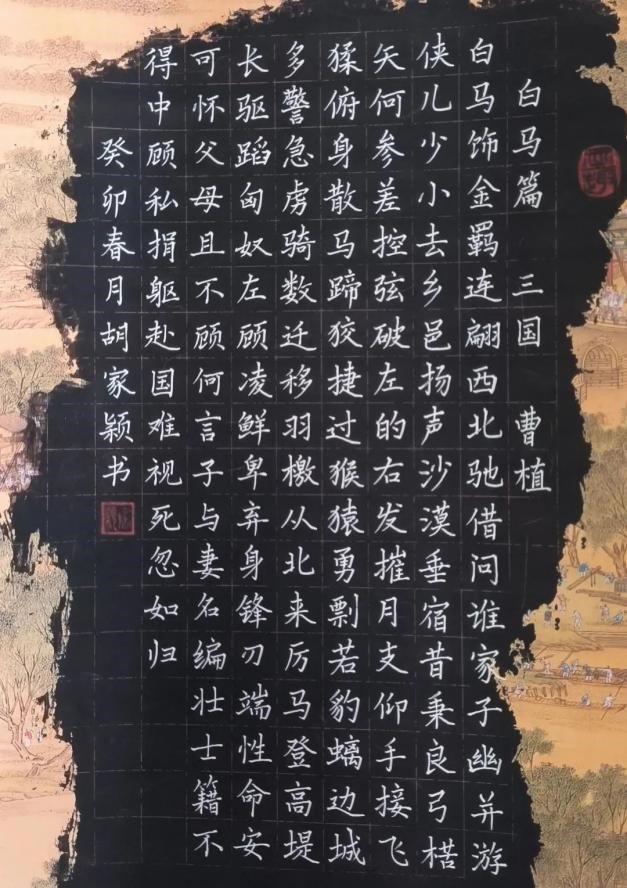 白马篇 三国 曹植
白马饰金羁连翩西北驰借问谁家子幽并游
侠儿少小去乡邑扬声沙漠垂宿昔秉良弓楛
矢何参差控弦破左的右发摧月支仰手接飞
猱俯身散马蹄狡捷过猴猿勇剽若豹螭边城
多警急虏骑数迁移羽檄从北来厉马登高堤
长驱蹈匈奴左顾凌鲜卑弃身锋刃端性命安
可怀父母且不顾何言子与妻名编壮士籍不
得中顾私捐躯赴国难视死忽如归
癸卯春月胡家颖书